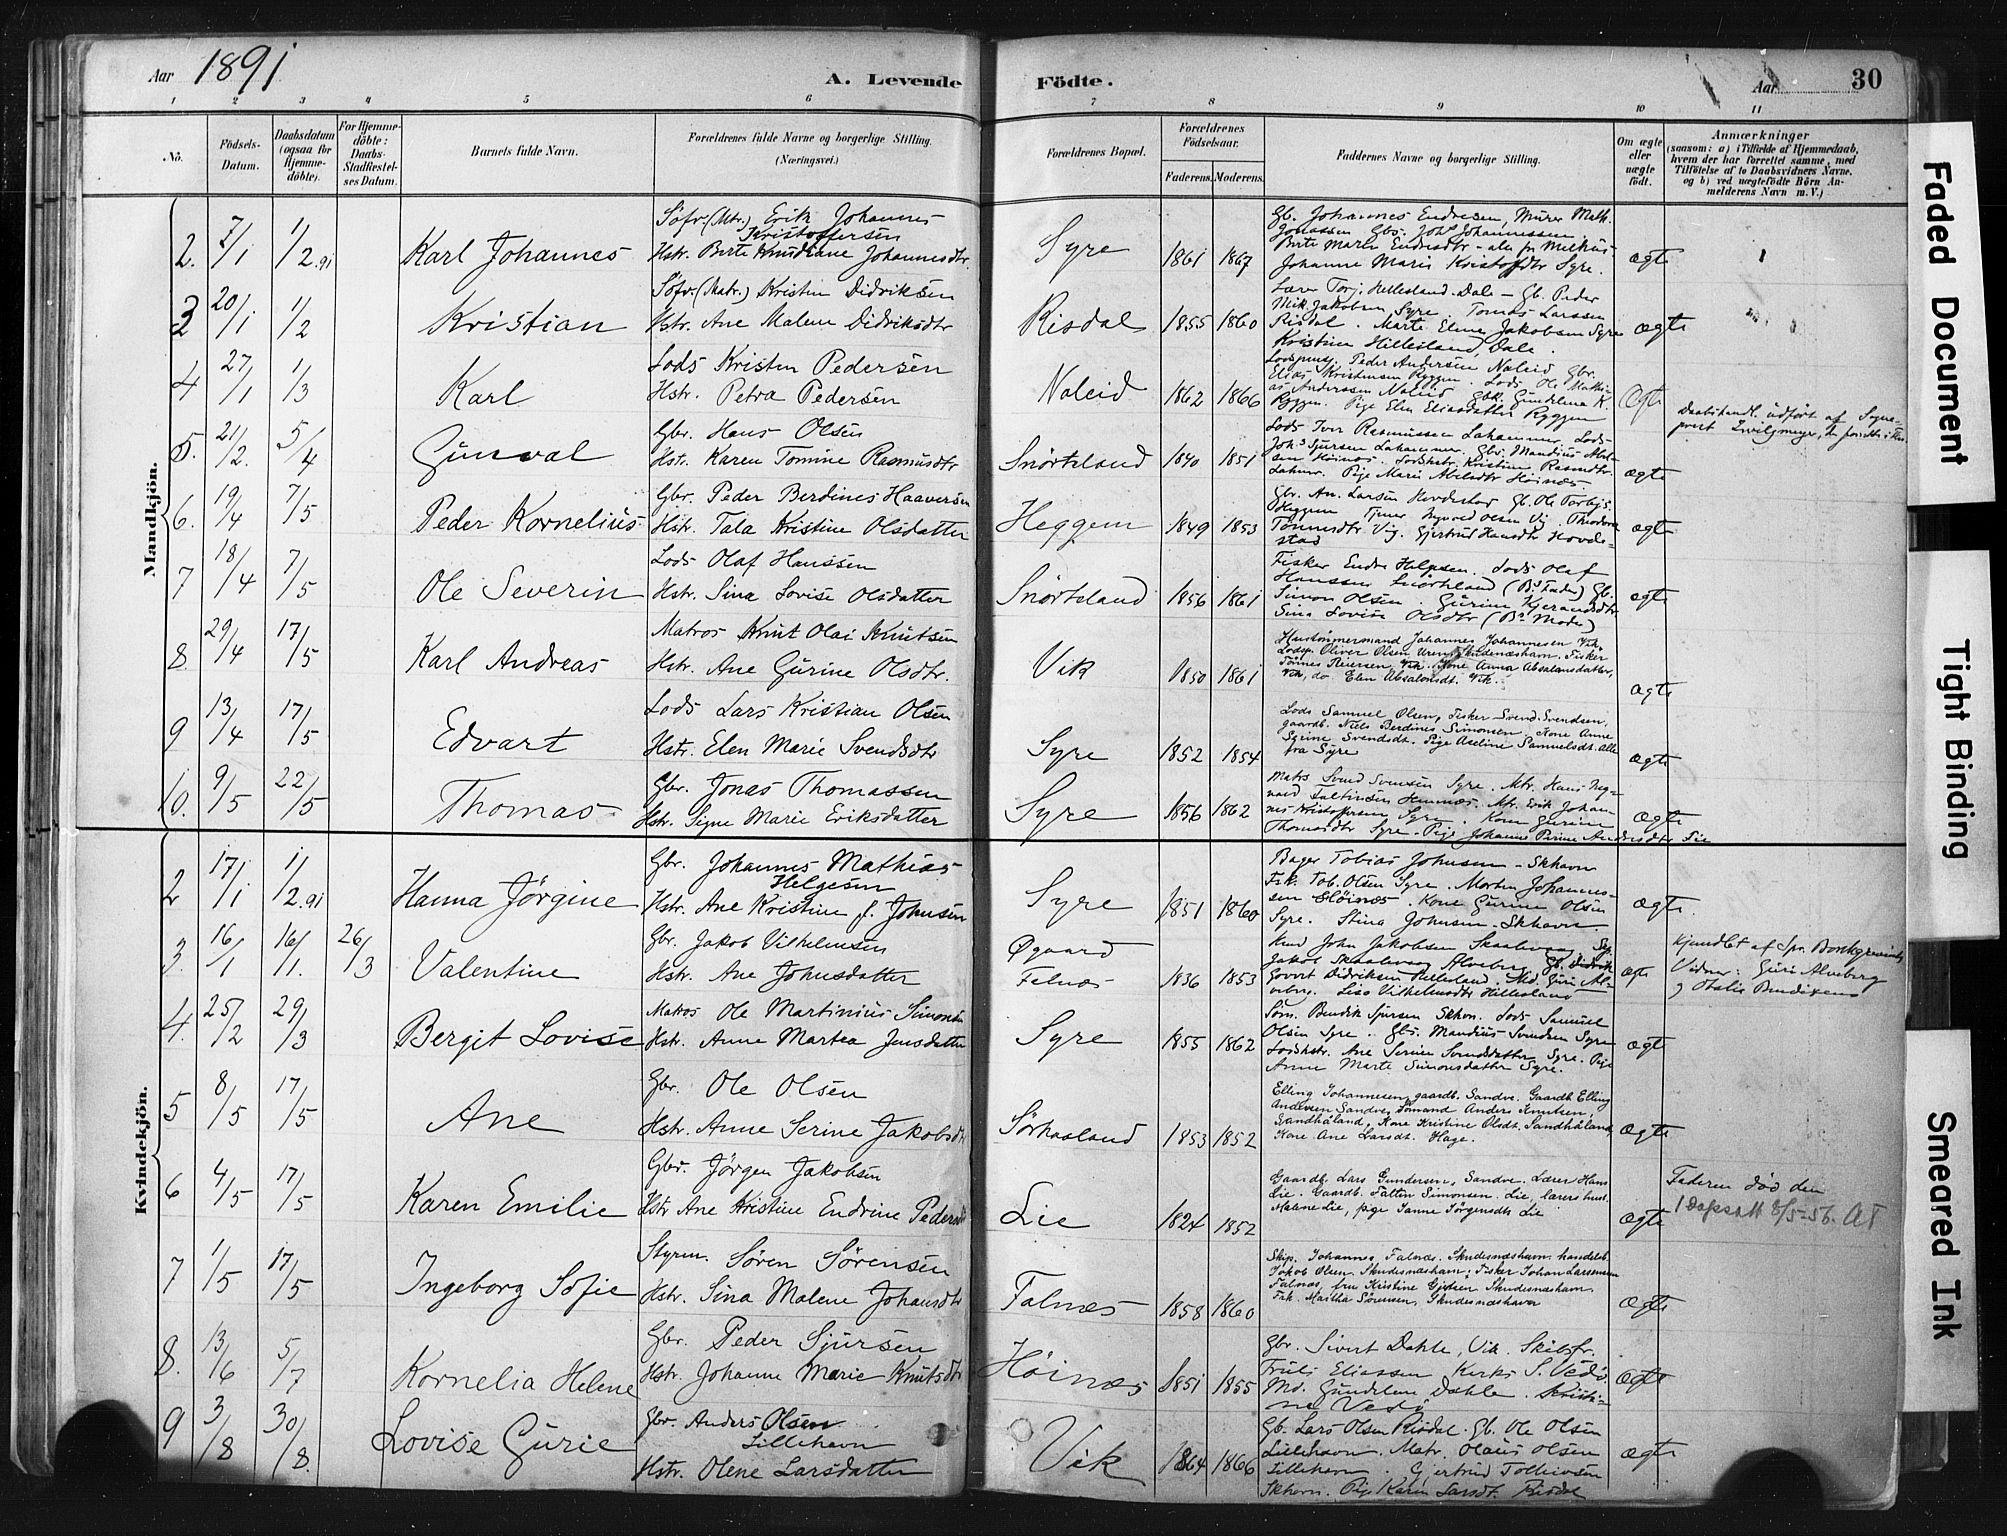 Aar 1891
A. Levende
Födte.
Aar 30
1 2 3 4 5 6 7 8 9 10 11
No.
Födsels-Datum.
Daabsdatum (ogsaa for Hjemme-döbte).
For Hjemme-döbte: Daabs-Stadfæstel-ses Datum.
Barnets fulde Navn.
Forældrenes fulde Navne og borgerlige Stilling.
(Næringsvei.)
Forældrenes Bopæl.
Forældrenes Födselsaar.
Faderens. Moderens.
Faddernes Navne og borgerlige Stilling.
Om ægte eller uægte födt.
Anmærkninger
(saasom: a) i Tilfælde af Hjemmedaab, hvem der har forrettet samme, med Tilföielse af to Daabsvidners Navne, og b) ved uægtefödte Börn An-melderens Navn m. V.)
Mandkjön.
2. 7/1 1/2 91 Karl Johannes
Söfv. (Mtr.) Erik Johannes
Kristoffersen
Hstr. Birte Knudiane Johannesdtr.
Syre 1861 1867
Gb. Johannes Endresen,
Johanne Marie Kristofdtr Syre.
ægte
3 20/1 1/2 Kristian
Söfv. (Matr.) Kristen Didriksen
Hstr. Ane Malene Didriksdtr
Risdal 1855 1860
Lærer Torj. Hillesland Dale - Gb. Peder
Mik. Jakobsen Syre. Tomas Larssen
Risdal. Marte Elene Jakobsen Syre
Kristine Hillesland, Dale.
ægte
4 27/1 1/3 Karl
Lods Kristen Pedersen
Hstr. Petra Pedersen
Naleid 1862 1866
Peder Andersen Naleid Gbr.
Elias Kristensen Ryggen. Lods Ole Mathi-
as Anderssen Naleid Gbk. Gundelena K.
Ryggen. Pige Elen Eliasdatter Ryggen
Ægte
Daabshandl. udfört af Sogne-
prest
5. 21/2. 5/4 Gunval
Gbr. Hans Olsen
Hstr. Karen Tomine Rasmusdtr
Snörteland 1840 1851
Lods Iver Rasmussen Lahammer. Lods
Johs Sjursen Lahammer. Gbr. Mandius Abel-
sen Höinæs. Lodshstr. Kristine Rasmdtr.
Lahmr. Pige Marie Abelsdtr Höinæs
ægte
6. 19/4 7/5 Peder Kornelius
Gbr. Peder Berdines Haaversen
Hstr. Tala Kristine Olsdatter
Heggem 1849 1853
Gbr. An. Larsen Hovdestad Gb. Ole Torbjs.
Heggem Tjener Ingvald Olsen Vig. Theodora
Tönnesdtr Vig. Gjertrud Hansdtr Hovde-
stad
ægte
7 18/4 7/5 Ole Severin
Lods Olaf Hanssen
Hstr. Sina Lovise Olsdatter
Snörteland 1856 1861
Fisker Endre Helgesen. Lods Olaf
Hanssen Snörteland (Bs Fader) Gb.
Simon Olsen. Gurine Kjerandsdtr
Sina Lovise Olsdtr (Bs Moder)
ægte
8. 29/4 17/5 Karl Andreas
Matros Knut Olai Knutsen
Hstr. Ane Gurine Olsdtr.
Vik 1850 1861
Hustömmermand Johannes Johannesen Vik,
Lodsp. Oliver Olsen Uren, Skudenæshavn, Fisker
Tönnes Reiersen, Vik. Kone Anna Absalonsdatter,
Vik, do Elen Absalonsdt. Vik.
ægte
9 13/4 17/5 Edvart
Lods Lars Kristian Olsen
Hstr. Elen Marie Svendsdtr
Syre 1852 1854
Lods Samuel Olsen, Fisker Svend Svendsen,
gaardb. Niels Berdines Simonsen, Kone Anne
Serine Svendsdt. Pige Aseline Samuelsdt. Alle
fra Syre
ægte
10. 9/5 22/5 Thomas
Gbr. Jonas Thomassen
Hstr. Signe Marie Eriksdatter
Syre 1856 1862
Matrs Svend Svensen Syre. Mtr. Hans Ing-
vald Faltinsen Hemnæs. Mtr. Erik Johan-
nes Kristoffersen Syre. Kone Gurine
Thomasdtr Syre. Pige Johanne Perine Andersdtr Lie
ægte
Kvindekjön.
2 17/1 1/2 91 Hanna Jörgine
Gbr. Johannes Mathias
Helgesen
Hstr. Ane Kristine f. Johnsen
Syre 1851 1860
Bager Tobias Johnsen - Skhavn
Fisk. Tob. Olsen Syre. Morten Johannes-
sen Höinæs. Kone Gurine Olsen
Syre. Stina Johnsen. Skhavn
ægte.
3. 16/1 16/1. 26/3 Valentine
Gbr. Jakob Vilhelmsen
Hstr. Ane Johnsdatter
Øgaard
Falnæs 1836 1853
John Jakobsen Skaalevaag
Jakob Skaalevaag Alveberg
Govert Didriksen Hillesland. Md. Guri Al-
veberg. Lise Vilhelmsdtr Hillesland
ægte
Hjemdöbt af Spr. Borchgrevink
Vidner: Guri Alveberg
og Otalie Bendixens
4. 25/2 29/3 Bergit Lovise
Matros Ole Martinius Simonsen
Hstr. Anne Martea Jensdatter
Syre 1855 1862
Söm. Bendik Sjursen Skhvn. Lods Samuel
Olsen Syre. Gbr. Mandius Svendsen Syre
Lodshstr. Ane Serine Svendsdatter Syre. Pige
Anne Marte Simonsdatter Syre.
ægt
5 8/5 17/5 Ane
Gbr. Ole Olsen
Hstr. Anne Serine Jakobsdtr
Sörhaaland 1853 1852
Elling Johannesen, gaardb. Sandve. Gaardb. Elling
Andersen Sandve, Sömand Anders Knutsen,
Sandhåland, Kone Kristine Olsdt. Sandhåland,
Kone Ane Larsdt. Hage.
ægte
6 4/5 17/5 Karen Emilie
Gbr. Jörgen Jakobsen
Hstr Ane Kristine Endrine Pedersdtr
Lie 1824 1852
Gaardb. Lars Gundersen, Sandve. Lærer Hans
Lie. Gaardb. Faltin Simonsen. Lie, lærers hust.
Malene Lie, pige Sanne Jörgensdt. Lie
ægte
Faderen död den
1 Dåpsatt 8/5-56. AT
7 1/5 17/5 Ingeborg Sofie
Styrm. Sören Sörensen
Hstr. Sina Malene Johansdtr
Falnæs 1858 1860
Skip. Johannes Falnæs. Skudesnæshavn. handelsb.
Jakob Olsen. Skudesnæshavn, Fisker Johan Larsensen
Falnæs, fru Kirstine Gjertsen Skudesnæshavn
Frk. Martha Sörensen, Skudesnæshavn
ægte
8. 13/6 5/7 Kornelia Helene
Gbr. Peder Sjursen
Hstr. Johanne Marie Knutsdtr
Höinæs 1851 1855
Gbr. Sivert Dahle, Vik. Skibsfr.
Truls Eliassen Kirks. S. Vedö.
Md. Gundelene Dahle. Kristi-
ne Vedö
ægte
9 3/8 30/8. Lovise Gurie
Gbr. Anders Olsen
Lillehavn
Hstr. Olene Larsdatter
Vik 1864 1866
Gb. Lars Olsen Risdal. Gb. Ole Olsen
Lillehavn. Matr. Olaus Olsen
Lillehavn. Gjertrud Tolleivsen
Skhavn. Pige Karen Larsdt. Risdal
ægte
Faded Document
Tight Binding
Smeared Ink